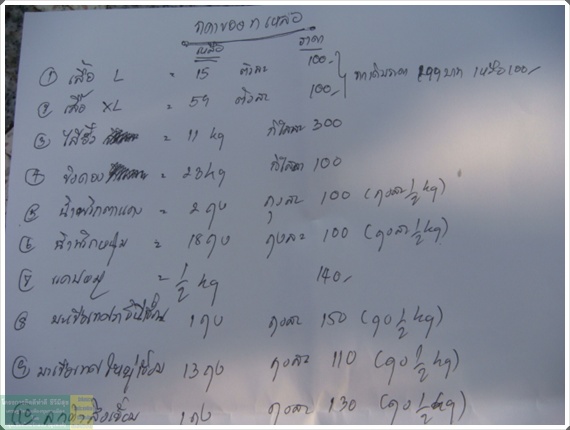 ราคาของ ที่ เหลือ
เหลือ ราคา
① เสื้อ L = 15 ตัวละ 100.-
② เสื้อ XL = 59 ตัวละ 100.- จากเดิมราคา 199 บาท เหลือ 100.-
③ ไส้อั่ว = 11 kg กิโลละ 300
④ = 23 kg กิโลละ 100
⑤ น้ำพริกตาแดง = 2 ถุง ถุงละ 100 (ถุงละ ½ kg)
⑥ น้ำพริกหนุ่ม = 18 ถุง ถุงละ 100 (ถุงละ ½ kg)
⑦ แคบหมู = ½ kg 140.-
⑧ 1 ถุง ถุงละ 150 (ถุง ½ kg)
⑨ มะเขือเทศใหญ่เชื่อม 13 ถุง ถุงละ 110 (ถุง ½ kg)
⑩ เชื่อม 1 ถุง ถุงละ 130 (ถุง ½ kg)